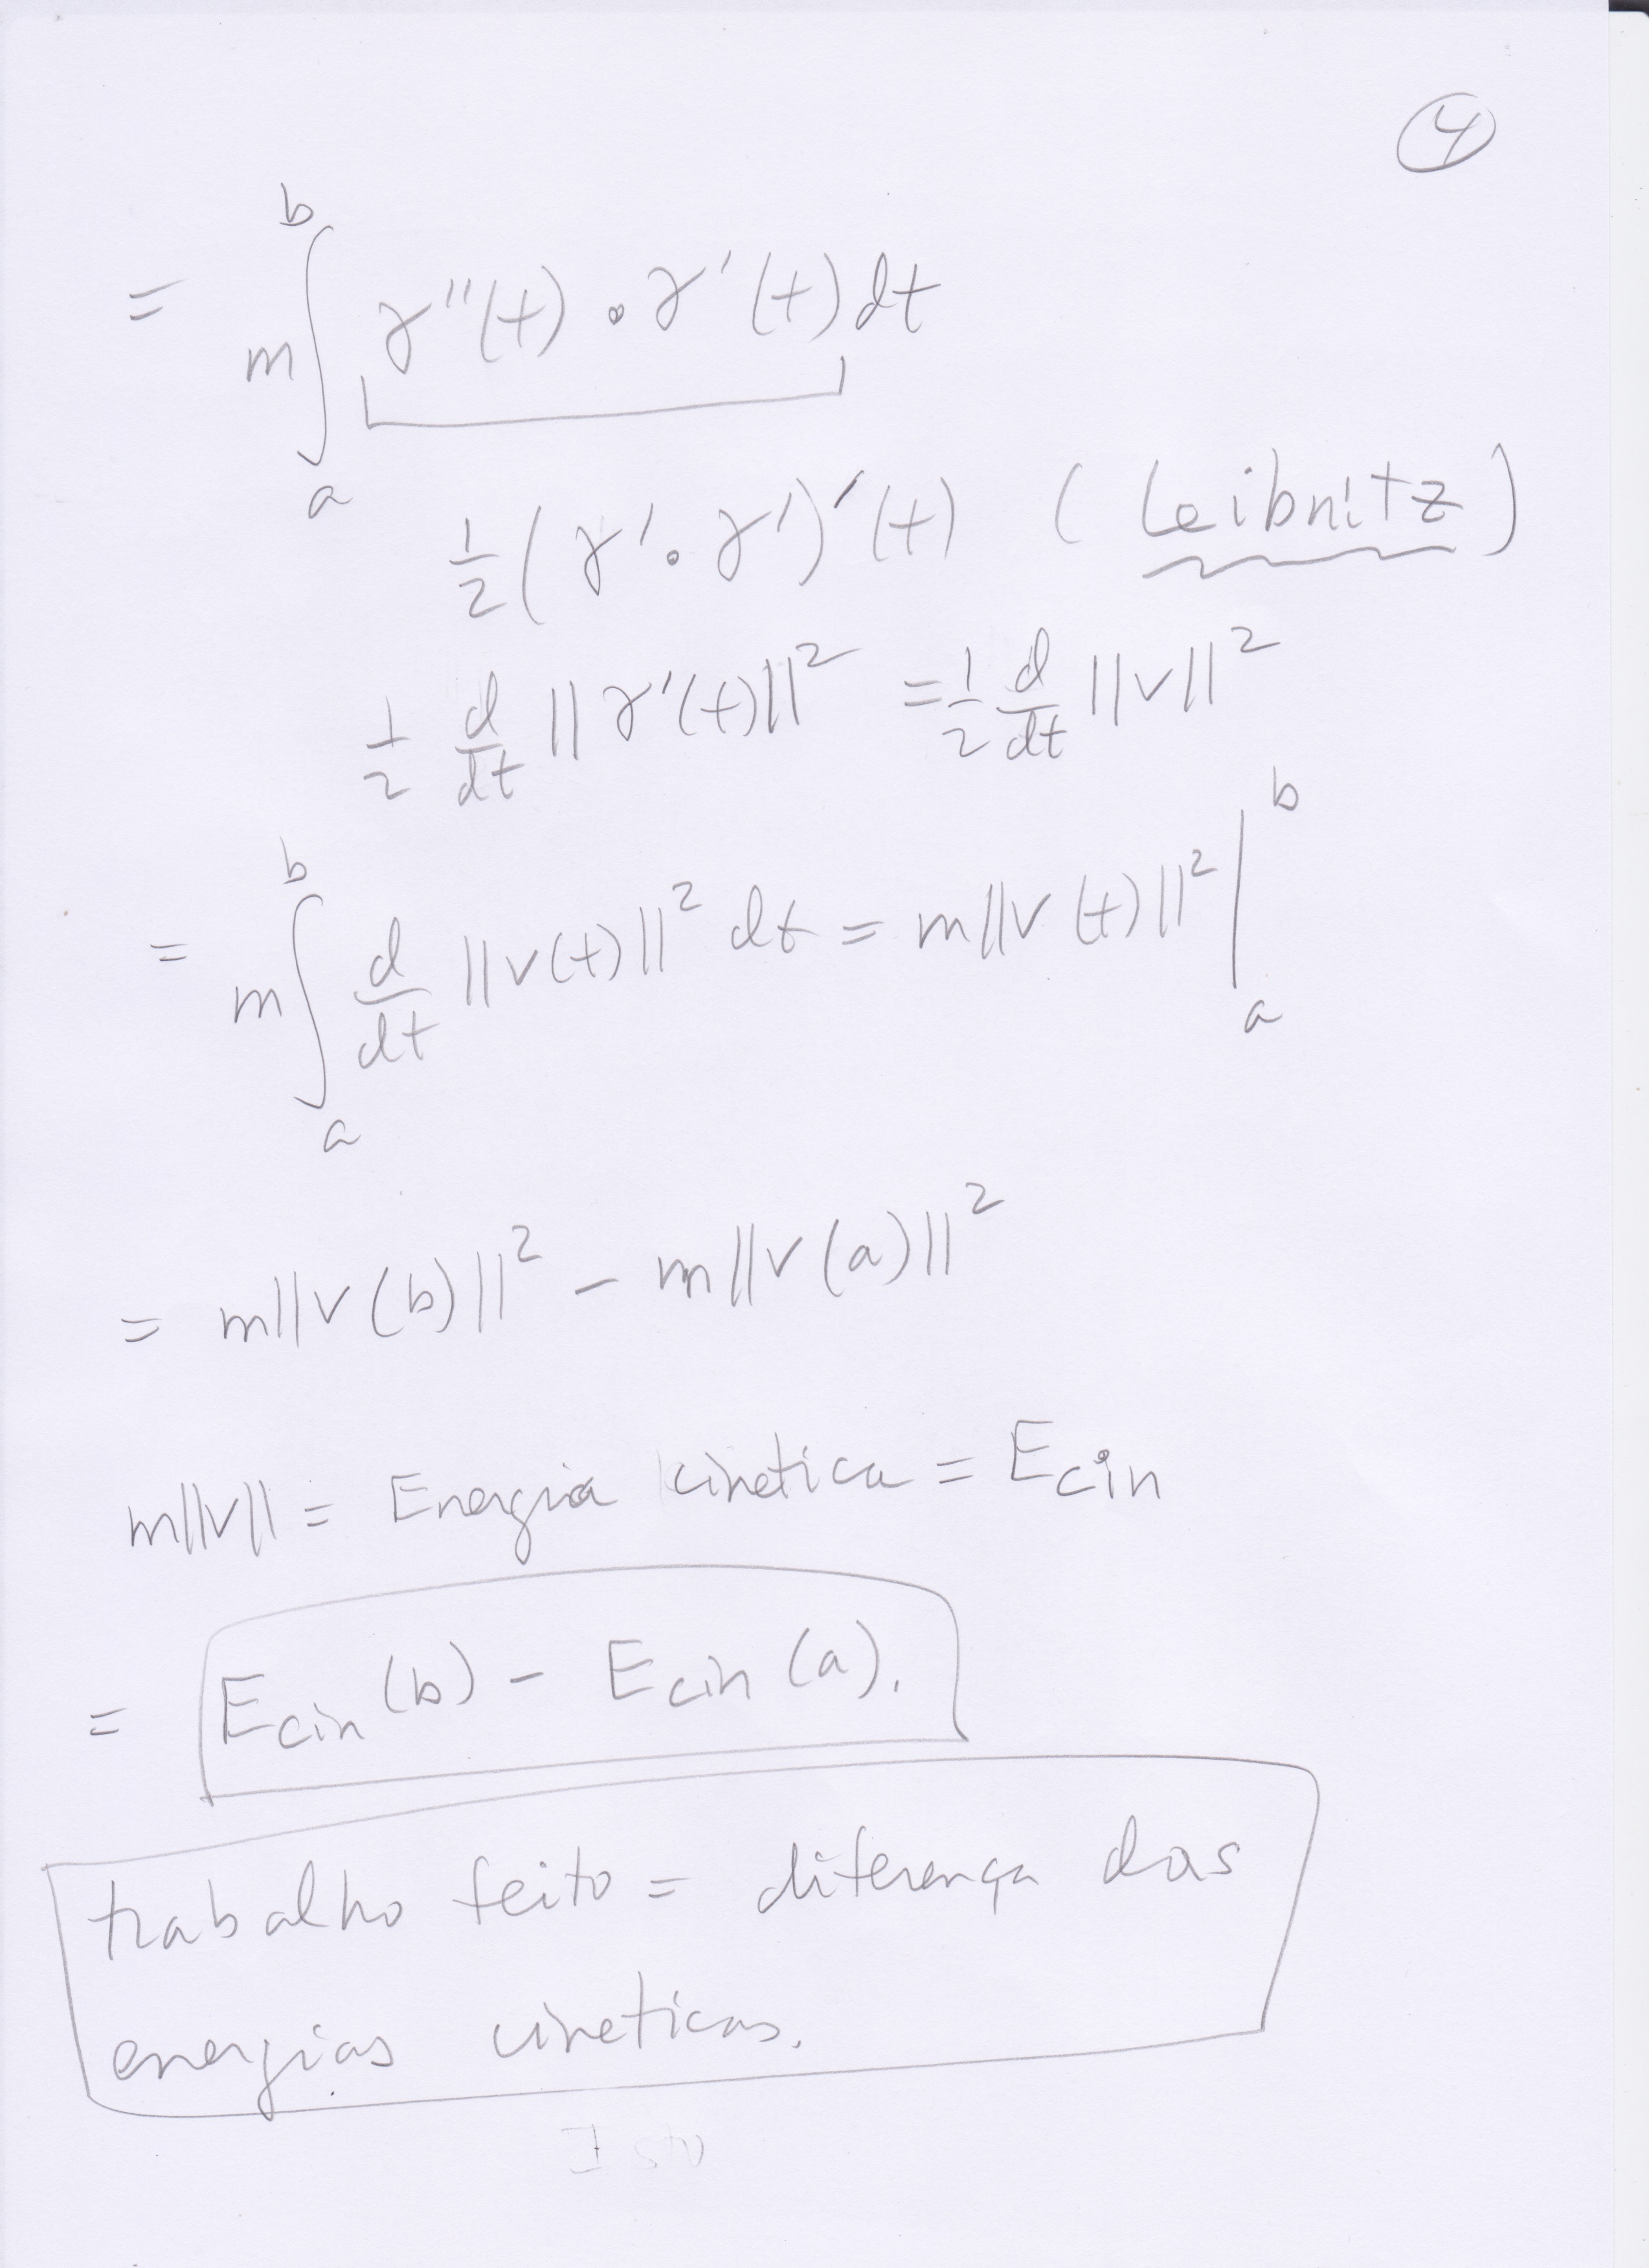 4
= m ∫_a^b γ''(t) • γ'(t) dt
1/2 (γ' • γ')'(t) (Leibnitz)
1/2 d/dt ||γ'(t)||² = 1/2 d/dt ||v||²
= m ∫_a^b d/dt ||v(t)||² dt = m||v(t)||² |_a^b
= m||v(b)||² - m||v(a)||²
m||v|| = Energia cinetica = Ecin
= Ecin(b) - Ecin(a).
trabalho feito = diferença das
energias cineticas.